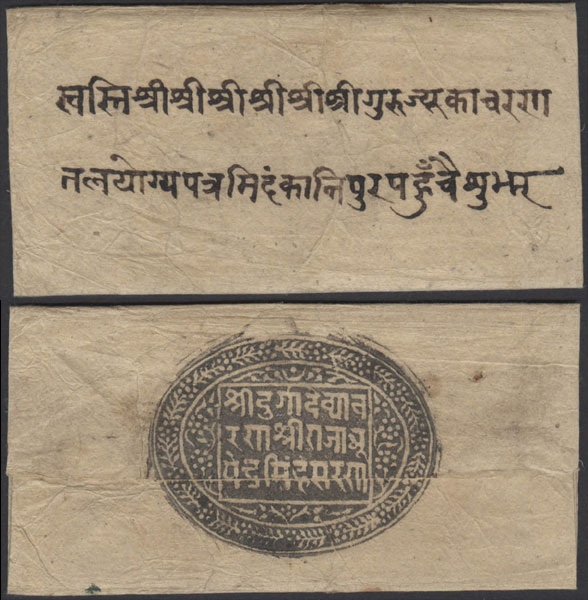 स्वस्तिश्रीश्रीश्रीश्रीश्रीश्रीगुरुज्यूकाचरण
तलयोग्यपत्रमिदंकान्तिपुरपहुँचैशुभम्
श्रीदुर्गादेव्याच
रणश्रीराजाभू
पेंद्रसिंहसरण